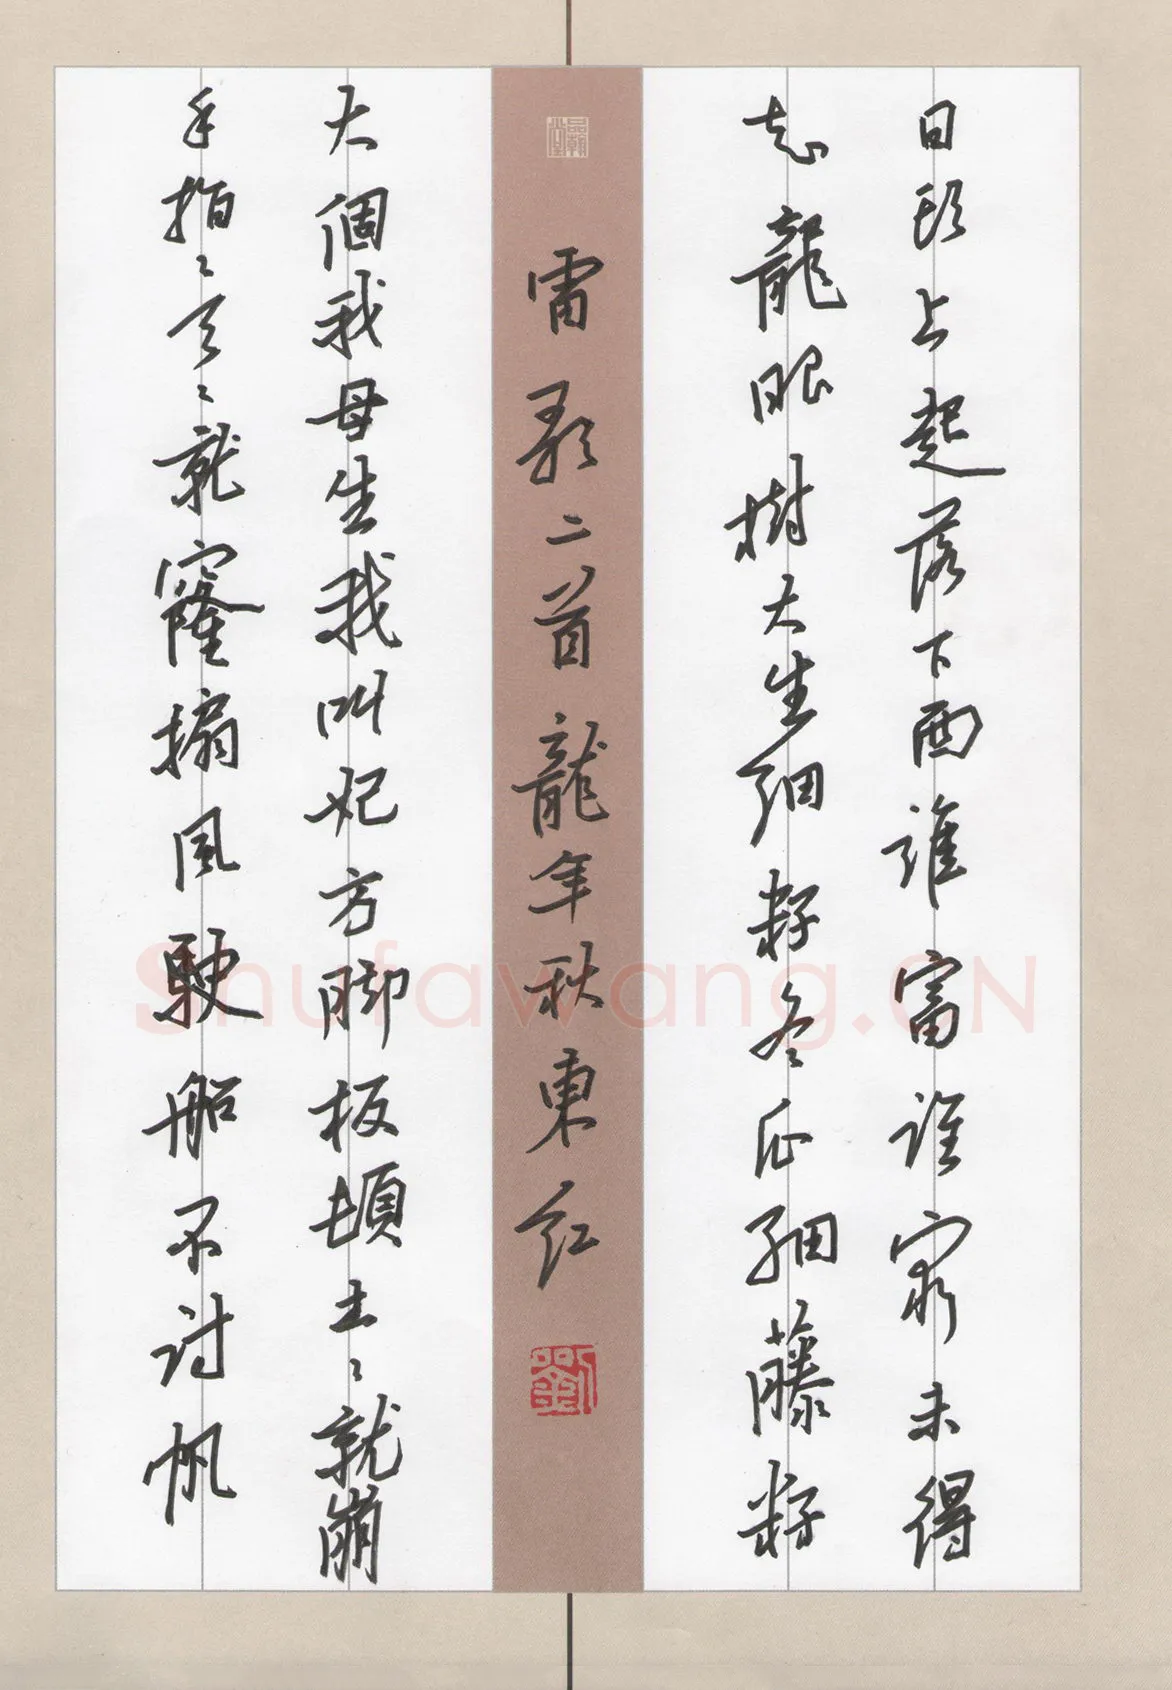 日头上起落下西誰富誰穷未得
志龍眼樹大生细籽冬瓜细藤籽
雷歌二首龍年秋東红
大個我母生我叫妃方脚板頓土〻就崩
手指〻天〻就窿搧風駛船不討帆
劉
Shufawang.CN